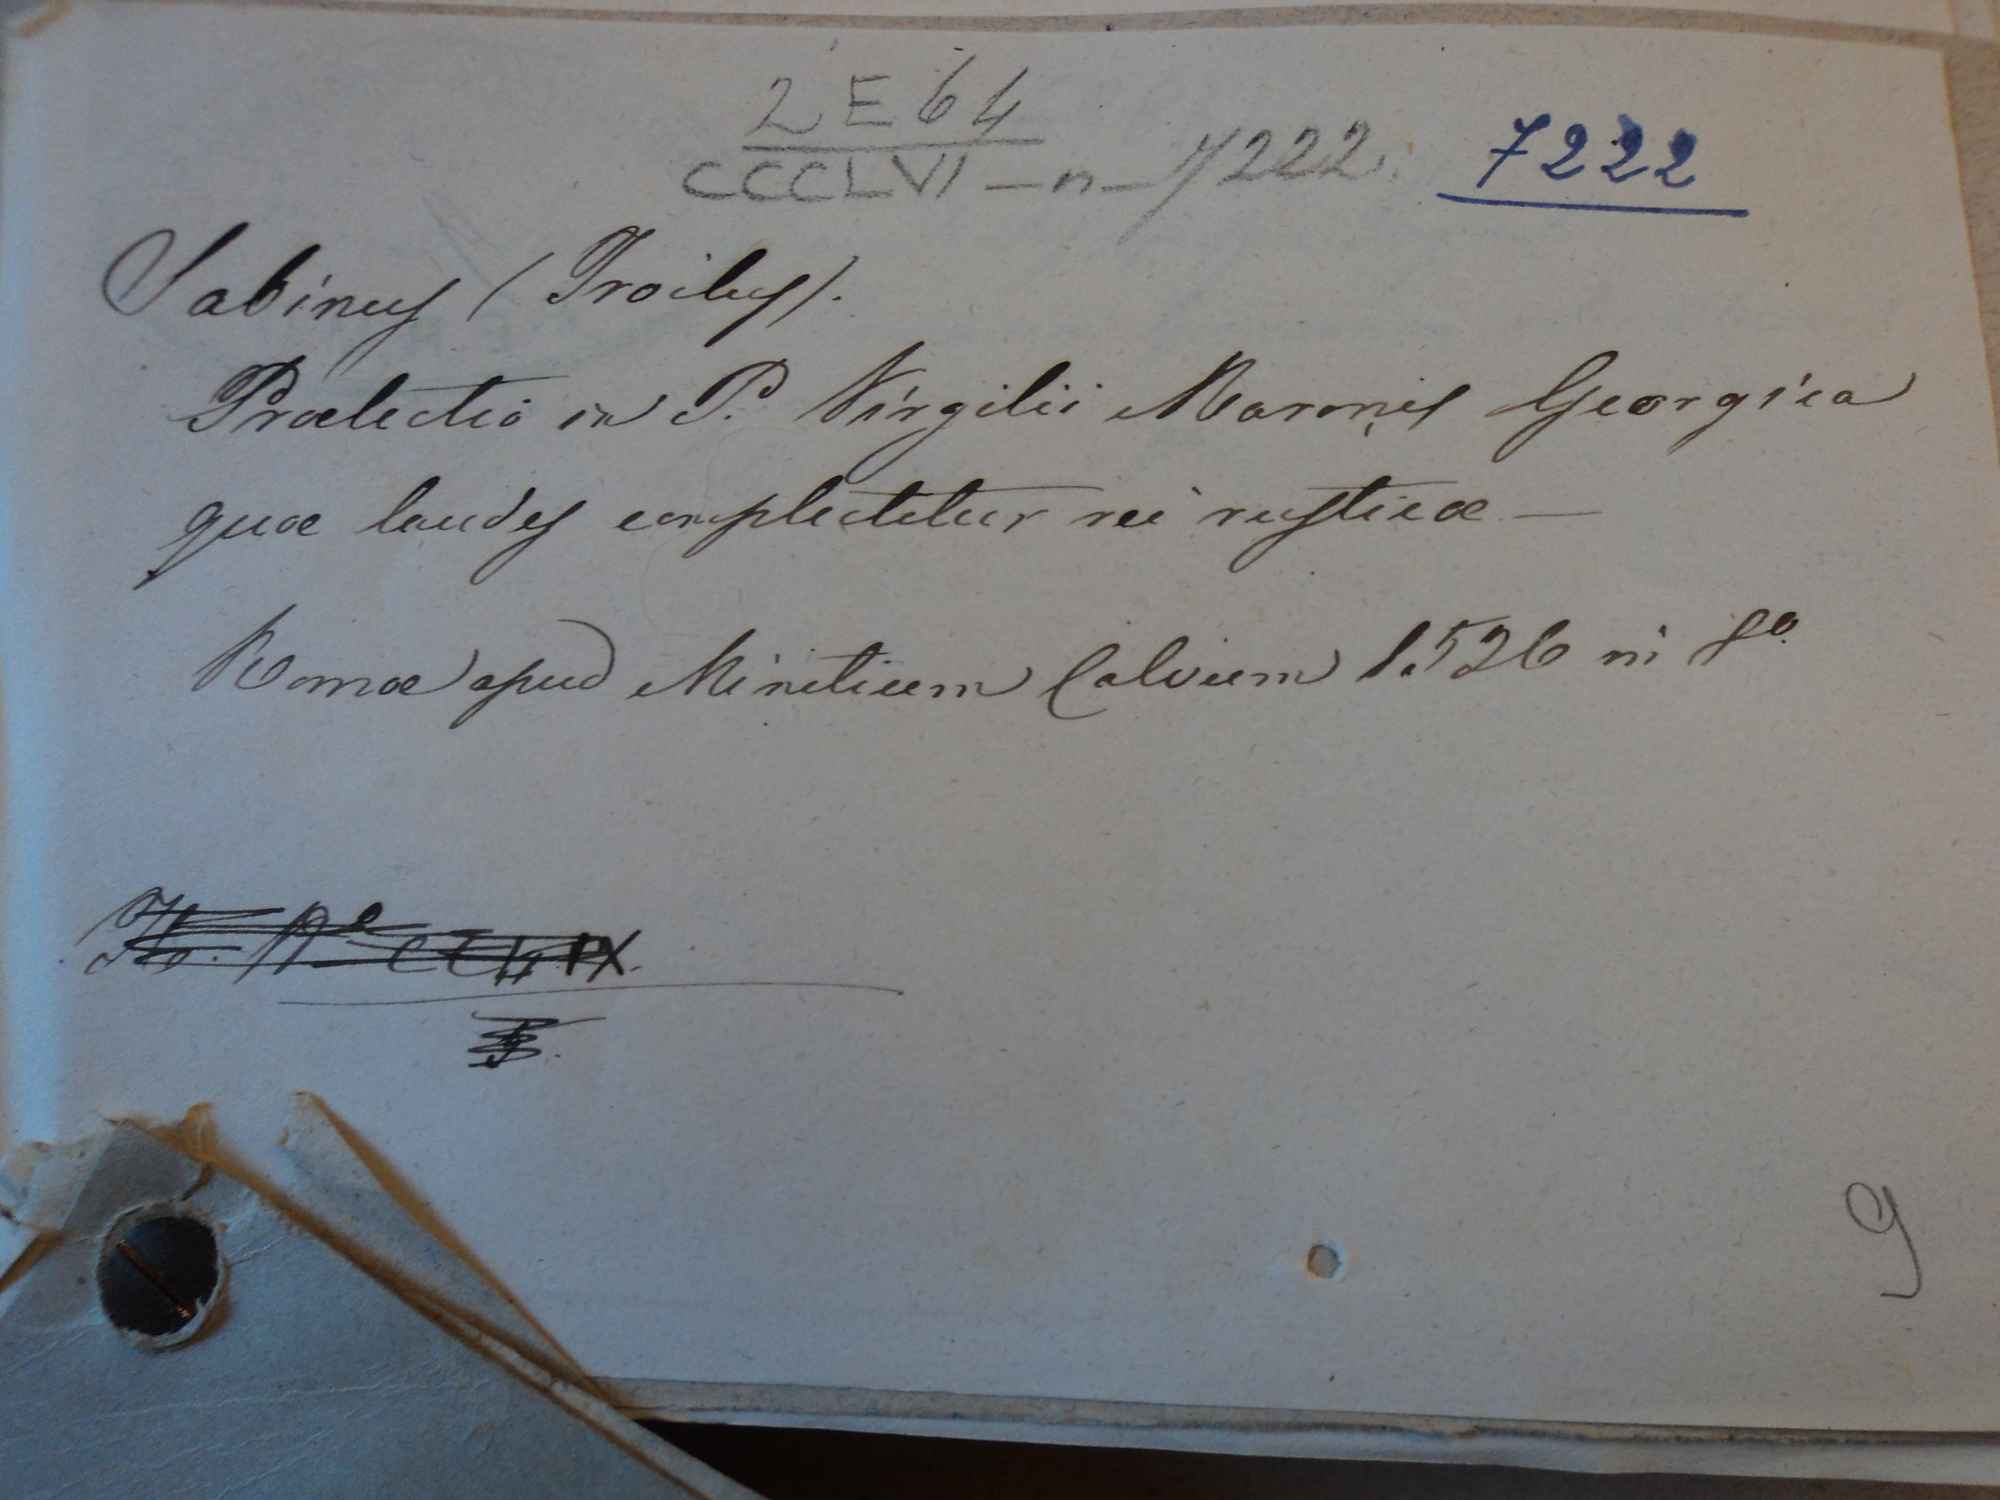 2 E 64
CCCLVI - n - 7222. 7222
Sabinus (Troilus).
Prælectio in P. Virgilii Maronis Georgica
quæ laudes complectitur rei rusticæ —
Romæ apud Minitium Calvum 1.526 in
9